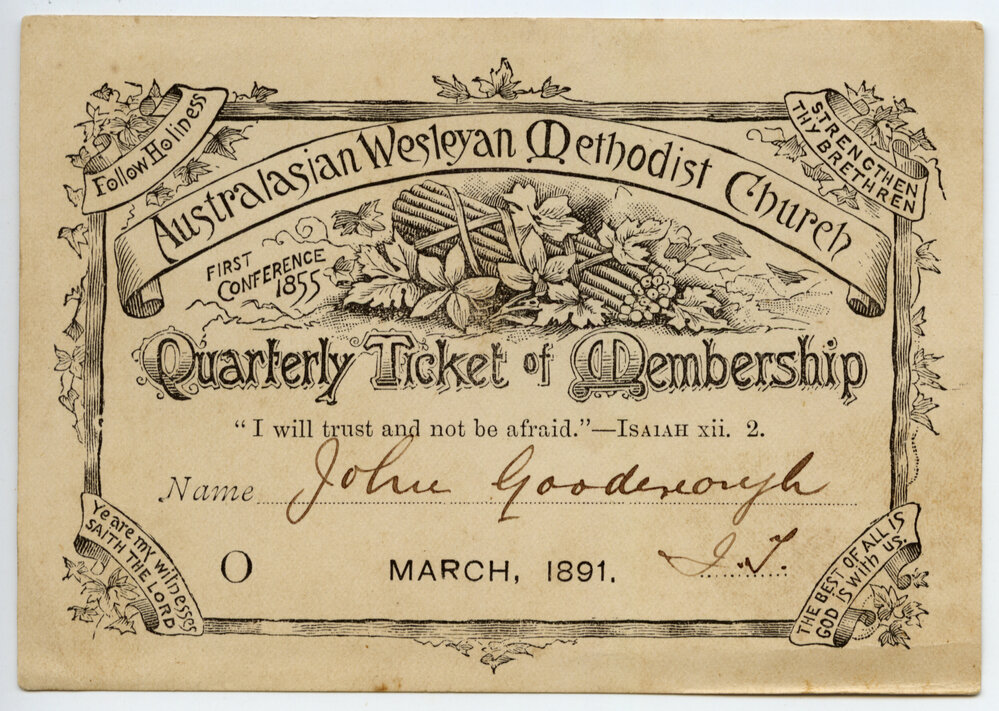 Follow Holiness
STRENGTHEN
THY BRETHREN
Australasian Wesleyan Methodist Church
FIRST
CONFERENCE
1855
Quarterly Ticket of Membership
“I will trust and not be afraid.”—ISAIAH xii. 2.
Name John Goodenough
O MARCH, 1891. J.T.
Ye are my witnesses
SAITH THE LORD
THE BEST OF ALL IS
GOD IS with US.